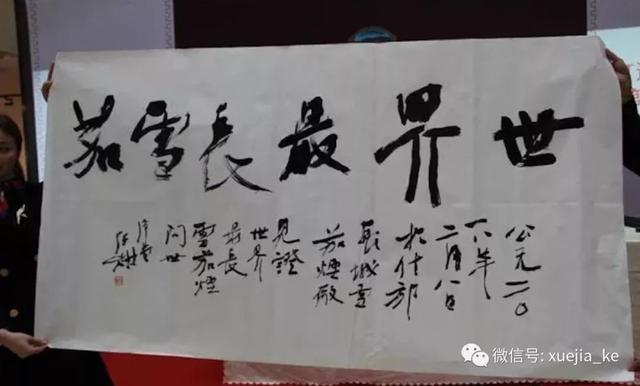 世界最長雪茄
公元二〇
一八年
二月八日
於什邡
長城雪
茄煙廠
見證
世界
最長
雪茄煙
问世
微信号: xuejia_ke